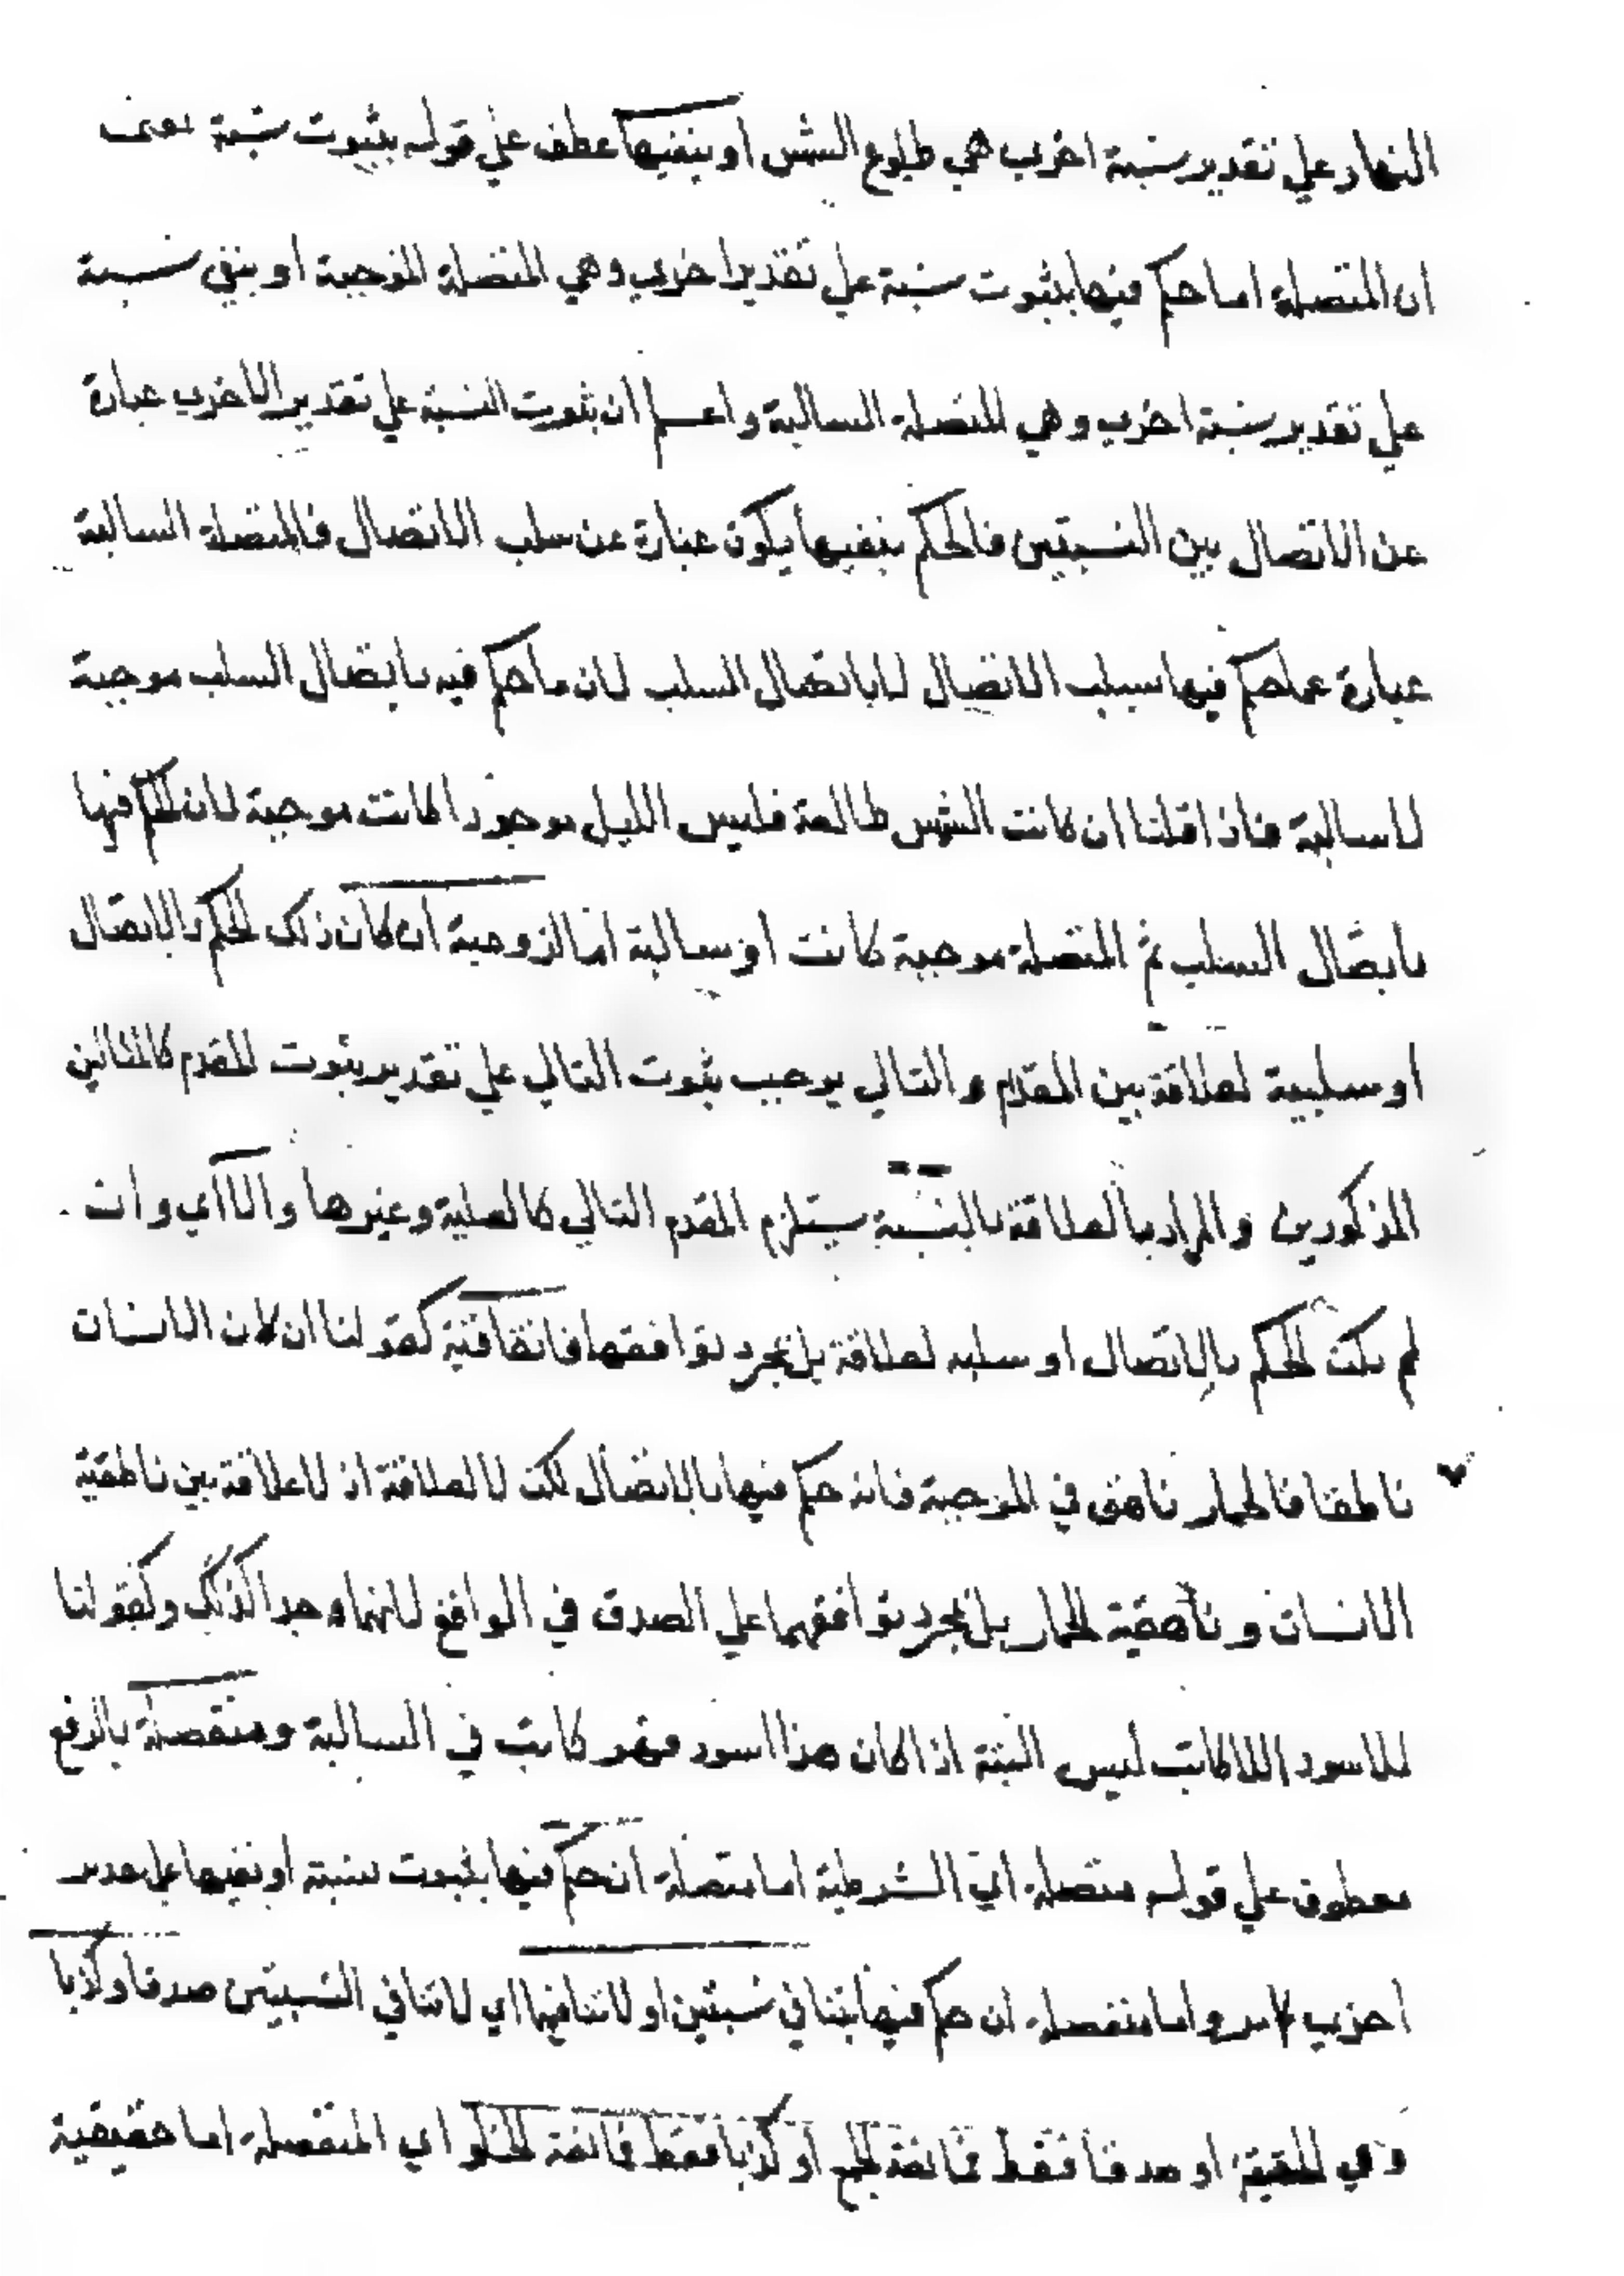 النهار علي تقدير نسبة اخري هي طلوع الشمس او بنفيها عطف علي قوله بثبوت نسبة يعني
ان المتصلة اما حكم فيها بثبوت نسبة علي تقدير اخري وهي المتصلة الموجبة او بنفي نسبة
علي تقدير نسبة اخري وهي المتصلة السالبة واعلم ان ثبوت النسبة علي تقدير الاخري عبارة
عن الاتصال بين النسبتين فالحكم بنفيها يكون عبارة عن سلب الاتصال فالمتصلة السالبة
عبارة عما حكم فيها بسلب الاتصال لا باتصال السلب لان ما حكم فيه باتصال السلب موجبة
لا سالبة فاذا قلنا ان كانت الشمس طالعة فليس الليل موجودا كانت موجبة لان الحكم فيها
باتصال السلب ثم المتصلة موجبة كانت او سالبة اما لزومية ان كان ذلك الحكم بالاتصال
او سلبية لعلاقة بين المقدم والتالي يوجب ثبوت التالي علي تقدير ثبوت المقدم كالمثالين
المذكورين والمراد بالعلاقة بالنسبة يستلزم المقدم التالي كالعلية وغيرها والا اي وان
لم يكن الحكم بالاتصال او سلبه لعلاقة بل بمجرد توافقها فاتفاقية كقولنا ان كان الانسان
ناطقا فالحمار ناهق في الموجبة فانه حكم فيها بالاتصال لكن لا لعلاقة اذ لا علاقة بين ناطقية
الانسان وناهقية الحمار بل بمجرد توافقهما علي الصدق في الواقع لانهما وجدا كذلك وكقولنا
للاسود اللاكاتب ليس البتة اذا كان هذا اسود فهو كاتب في السالبة ومنفصلة بالرفع
معطوف علي قوله متصلة اي الشرطية اما متصلة ان حكم فيها بثبوت نسبة او نفيها علي تقدير
اخري كما مر واما منفصلة ان حكم فيها بتنافي نسبتين او لاتنافيهما اي لاتنافي النسبتين صدقا وكذبا
وهي الحقيقية او صدقا فقط فمانعة الجمع او كذبا فقط فمانعة الخلو اي المنفصلة اما حقيقية